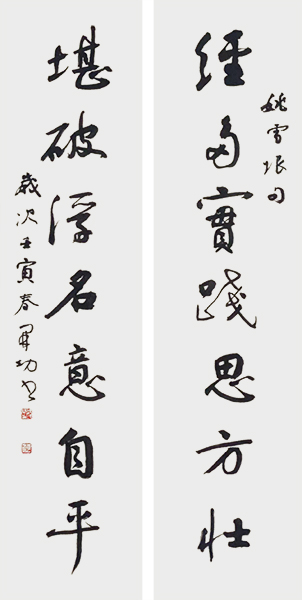 經多實踐思方壯
姚雪垠句
堪破浮名意自平
歲次壬寅春功書